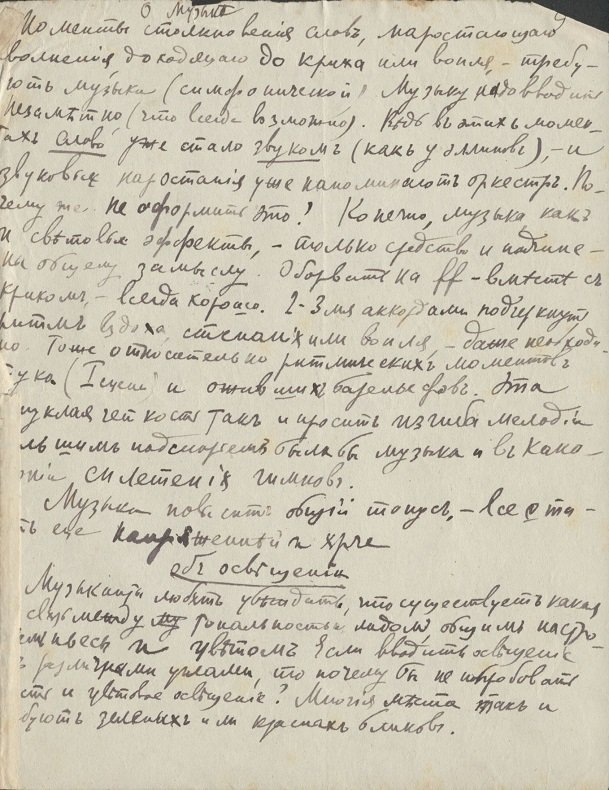 О Музыкѣ
Моменты столкновенія словъ, наростающаго
волненія доходящаго до крика или вопля, – требу-
ютъ музыки (симфонической) Музыку надо вводить
незамѣтно (что всегда возможно). Вѣдь въ этихъ момен-
тахъ слово уже стало звукомъ (какъ у эллиновъ), – и
звуковыя наростанія уже напоминаютъ оркестръ. По-
чему же не оформить это! Конечно, музыка какъ
и свѣтовые эффекты, – только средство и подчине-
на общему замыслу. Оборвать на ff – вмѣстѣ съ
крикомъ, – всегда хорошо. 2-3мя аккордами подчеркнуть
ритмъ вздоха, стенанія или вопля, – даже необходи-
мо. Тоже относительно ритмическихъ моментовъ
тука (I сцена) и ожившихъ барельефовъ. Эта
уклая четкость такъ и проситъ изгиба мелодіи
льшимъ подспорьемъ была бы музыка и въ Како-
оніи сплетенія гимновъ.
Музыка повыситъ общій тонусъ, – все ста-
ть еще напряженнѣй и ярче
объ освѣщеніи
Музыканты любятъ убѣждать, что существуетъ какая
связь между тональностью ладомъ общимъ настро-
мъ пьесы и цвѣтомъ Если вводить освѣщеніе
ъ различными углами, то почему бы не попробовать
сти и цвѣтовое освѣщеніе? Многія мѣста такъ и
буютъ зеленыхъ или красныхъ бликовъ.